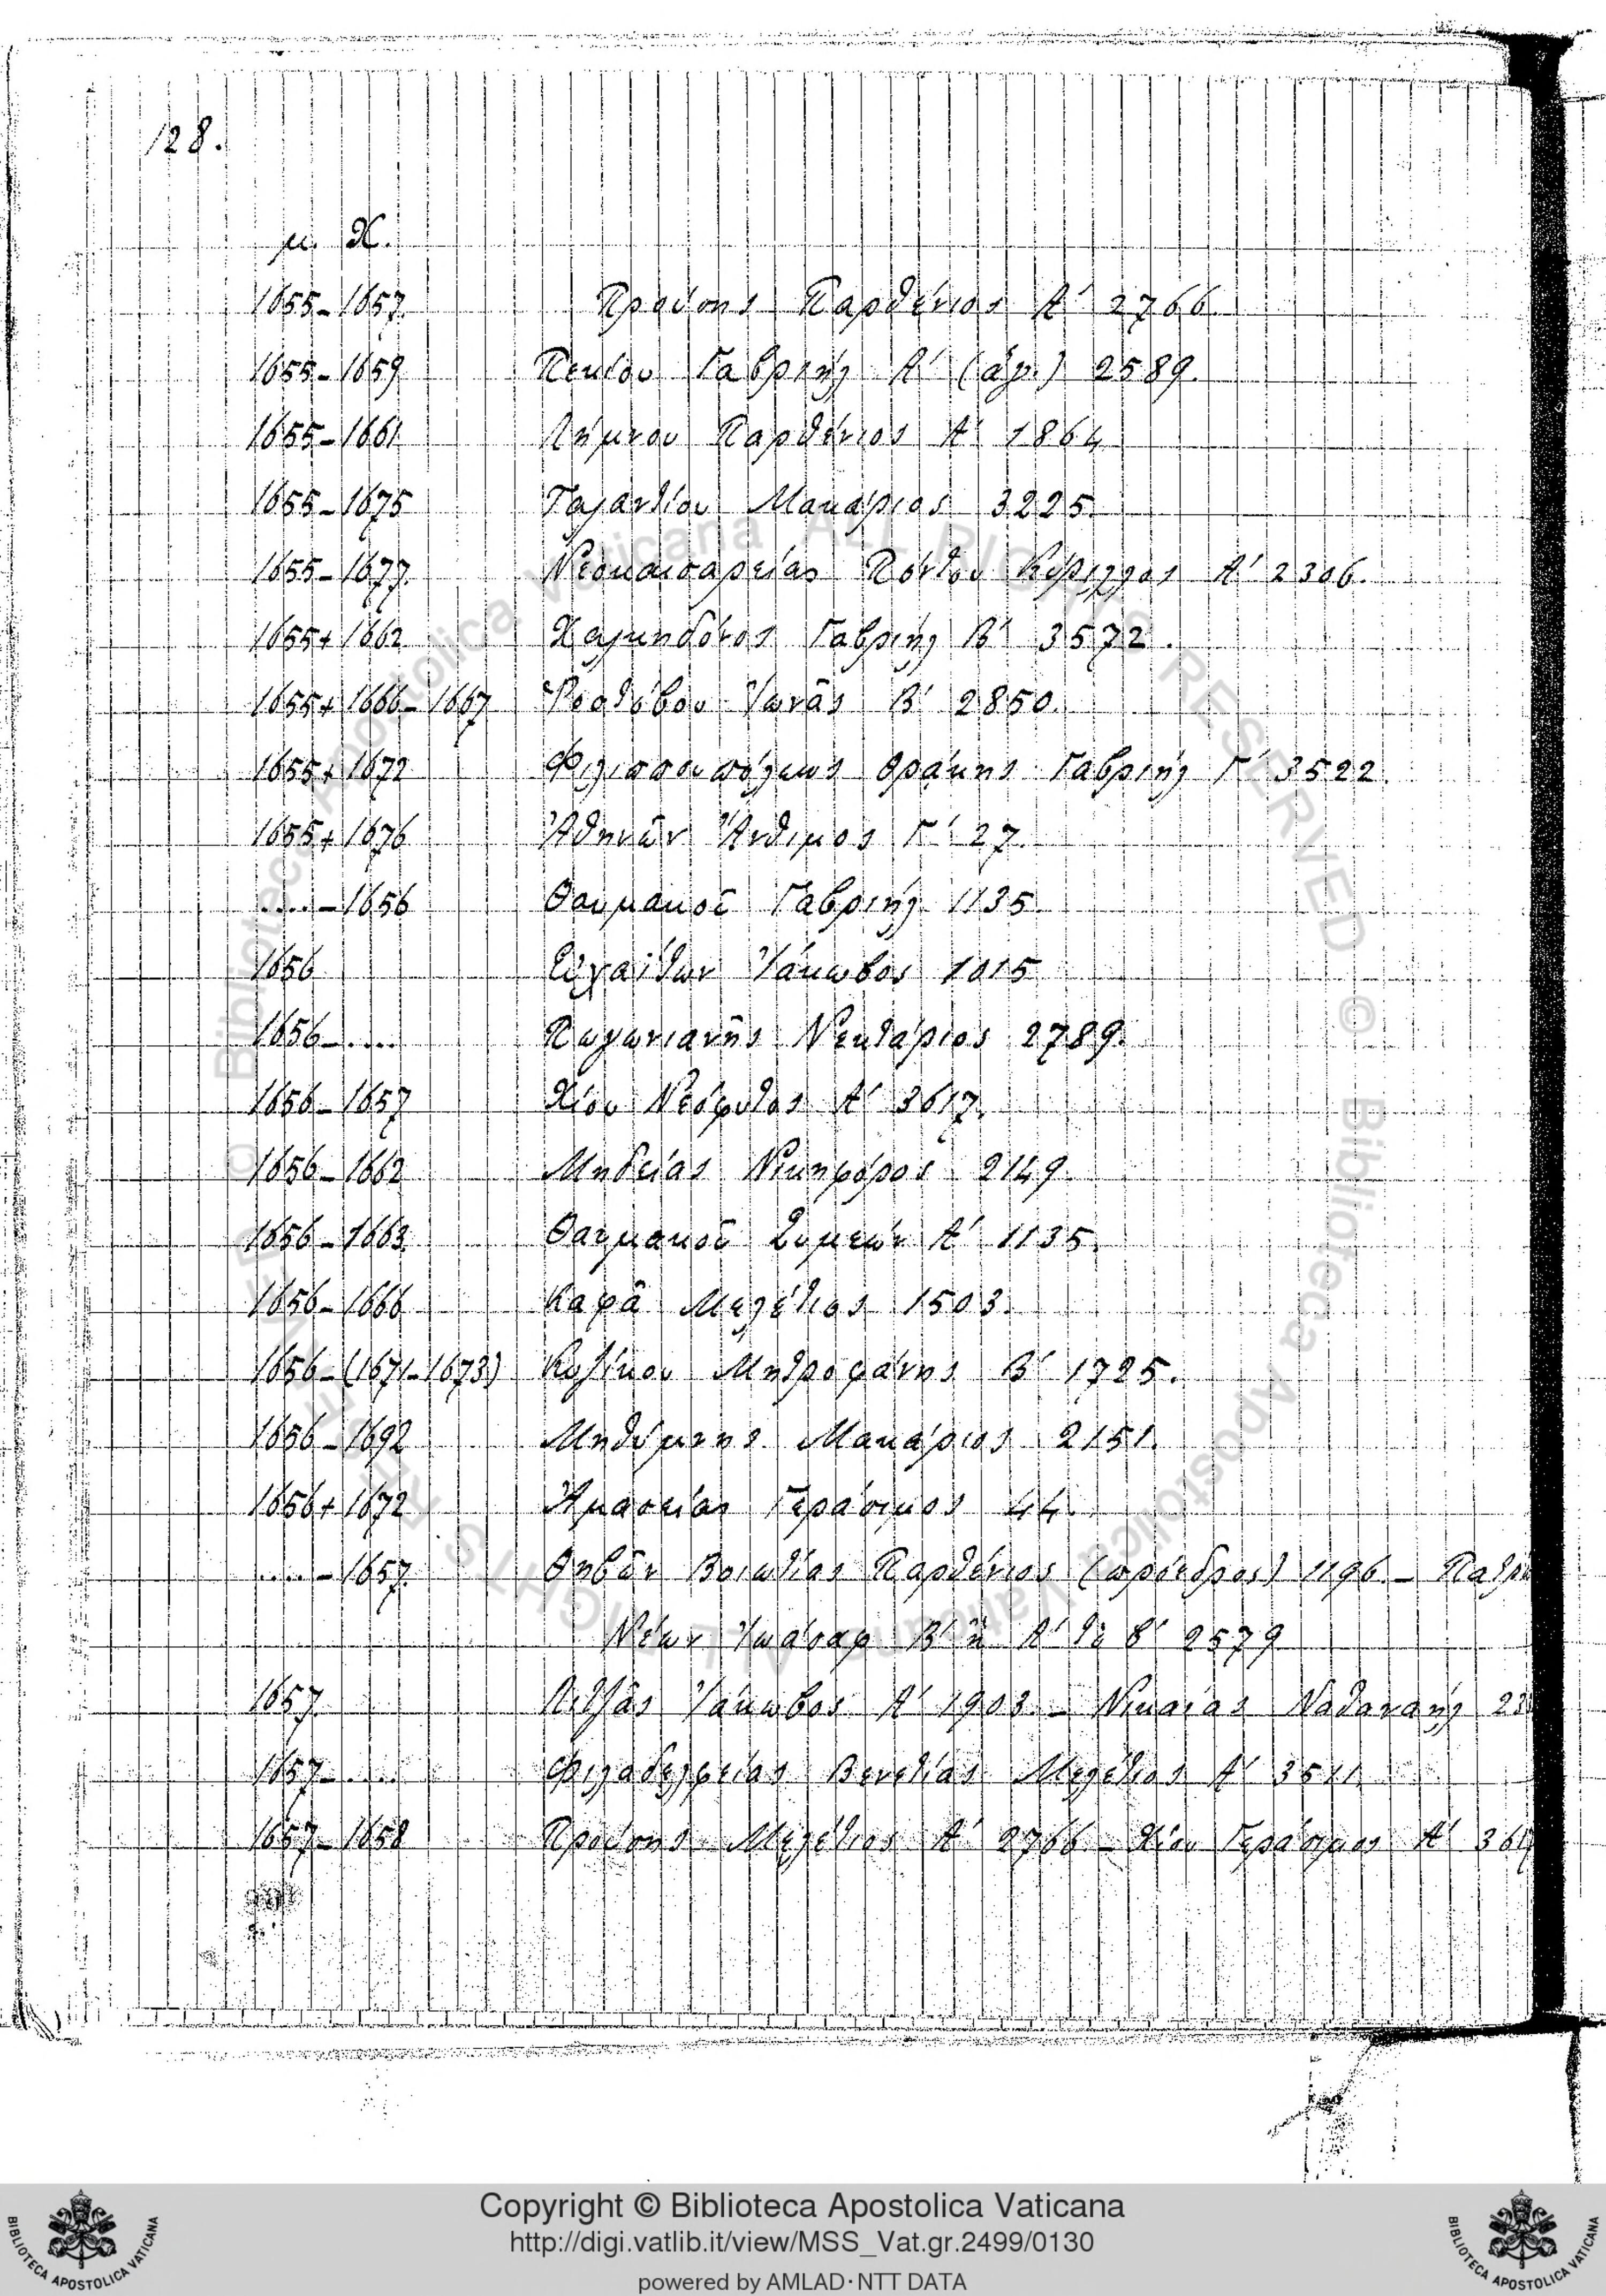 128.
μ. Χ.
1655-1657 Προύσης Παρθένιος Α' 2766.
1655-1659 Πεκίου Γαβριήλ Α' (ἅγ.) 2589.
1655-1661 Λήμνου Παρθένιος Α' 1864
1655-1675 Γαλαντίου Μακάριος 3225.
1655-1677. Νεοκαισαρείας Πόντου Κύριλλος Α' 2306.
1655+1662 Χαλκηδόνος Γαβριήλ Β' 3572.
1655+1666-1667 Ῥεθύμνου Ἰωνᾶς Β' 2850.
1655+1672 Φιλιππουπόλεως Θράκης Γαβριήλ Γ' 3522.
1655+1676 Ἀθηνῶν Ἄνθιμος Γ' 27.
....-1656 Θαυμακοῦ Γαβριήλ 1135.
1656 Εὐχαΐτων Ἰάκωβος 1015
1656-.... Πωγωνιανῆς Νεκτάριος 2789.
1656-1657 Χίου Νεόφυτος Α' 3617.
1656-1662 Μηδείας Νικηφόρος 2149.
1656-1663 Θαυμακοῦ Συμεών Α' 1135.
1656-1666 Καφᾶ Μελέτιος 1503.
1656-(1671-1673) Κυζίκου Μητροφάνης Β' 1725.
1656-1692 Μηθύμνης Μακάριος 2151.
1656+1672 Ἀμασείας Γεράσιμος 44.
....-1657. Θηβῶν Βοιωτίας Παρθένιος (πρόεδρος) 1196.-
Νέων Ἰωάσαφ Β' ἢ Α' τὸ β' 2579
1657 Λιτζᾶς Ἰάκωβος Α' 1903.- Νικαίας Ναθαναήλ
1657-.... Φιλαδελφείας Βενετίας Μελέτιος Α' 3511
1657-1658 Προύσης Μελέτιος Α' 2766.- Χίου Γεράσιμος Α'
Copyright © Biblioteca Apostolica Vaticana
http://digi.vatlib.it/view/MSS_Vat.gr.2499/0130
powered by AMLAD·NTT DATA